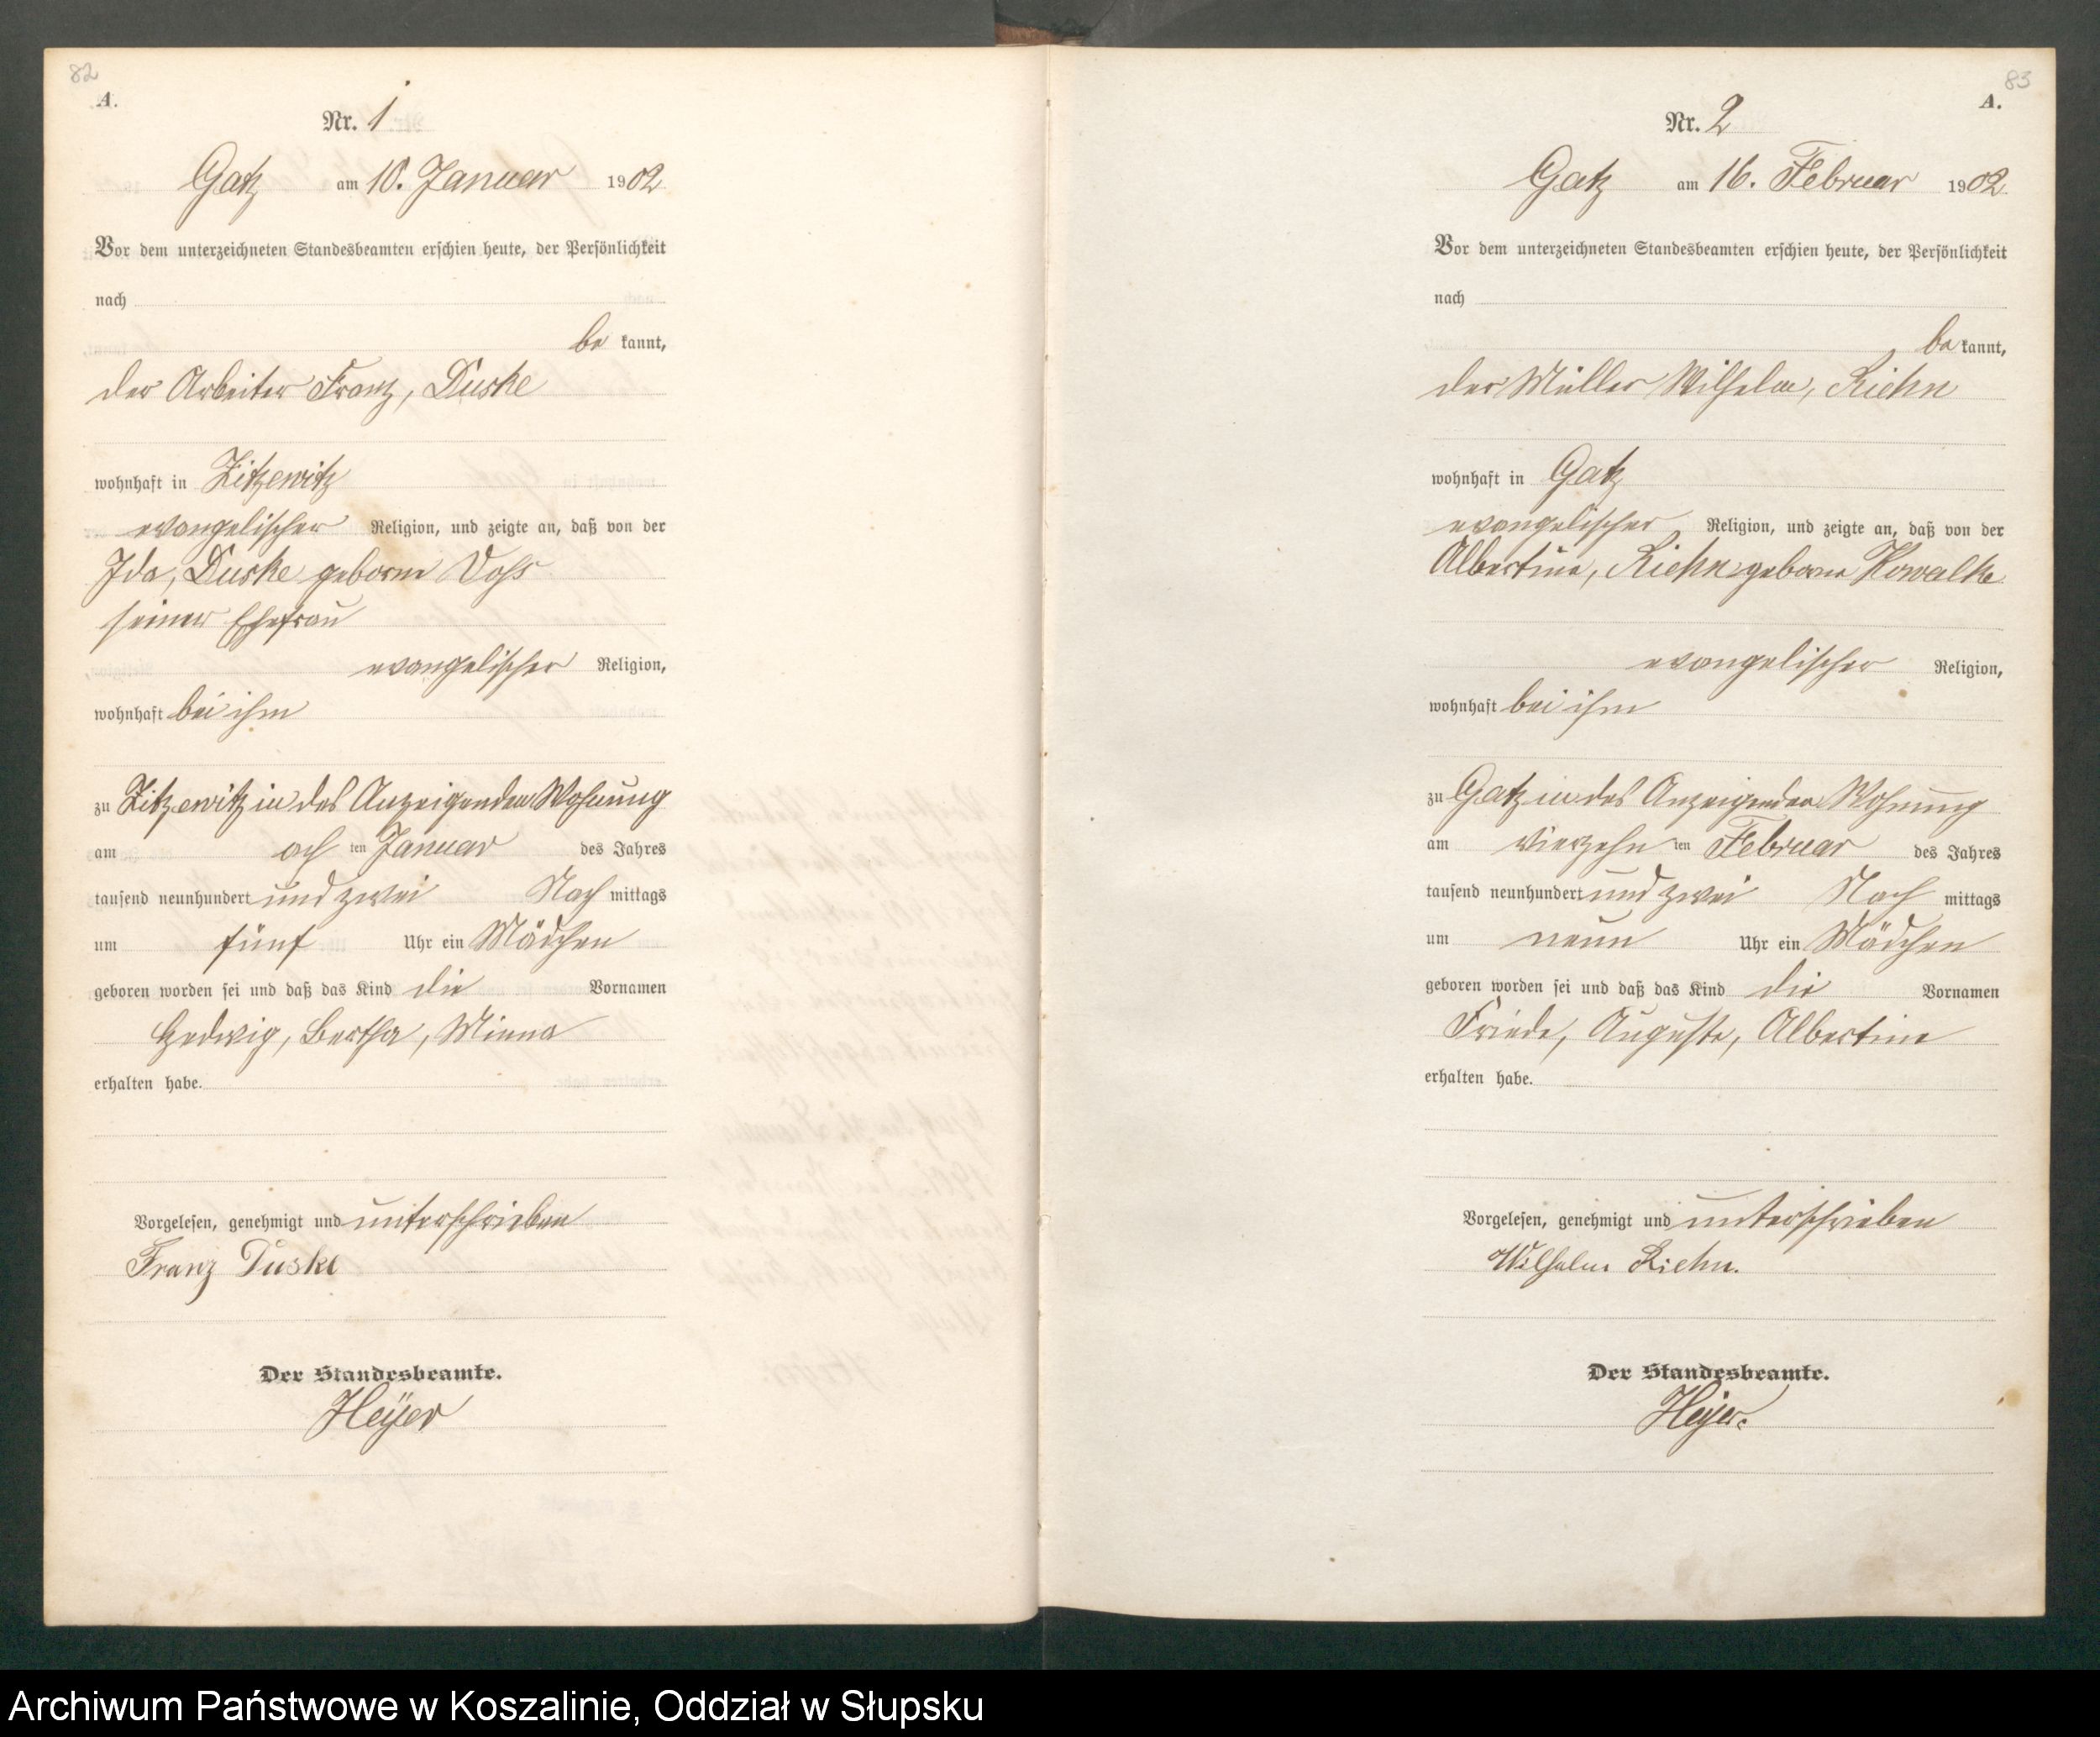 82
A.
Nr. 1
Gatz am 10. Januar 1902
Vor dem unterzeichneten Standesbeamten erschien heute, der Persönlichkeit
nach
be kannt,
der Arbeiter Franz, Duske
wohnhaft in Zitzewitz
evangelischer Religion, und zeigte an, daß von der
Ida, Duske geborne Voss
seiner Ehefrau
evangelischer Religion,
wohnhaft bei ihm
zu Zitzewitz in des Anzeigenden Wohnung
am ach ten Januar des Jahres
tausend neunhundert und zwei Nach mittags
um fünf Uhr ein Mädchen
geboren worden sei und daß das Kind die Vornamen
Hedwig, Bertha, Minna
erhalten habe.
Vorgelesen, genehmigt und unterschrieben
Franz Duske
Der Standesbeamte.
Heyer
83
A.
Nr. 2
Gatz am 16. Februar 1902
Vor dem unterzeichneten Standesbeamten erschien heute, der Persönlichkeit
nach
be kannt,
der Müller Wilhelm, Kiehn
wohnhaft in Gatz
evangelischer Religion, und zeigte an, daß von der
Albertine, Kiehn geborne Kowalke
evangelischer Religion,
wohnhaft bei ihm
zu Gatz in des Anzeigenden Wohnung
am vierzehn ten Februar des Jahres
tausend neunhundert und zwei Nach mittags
um neun Uhr ein Mädchen
geboren worden sei und daß das Kind die Vornamen
Friede, Auguste, Albertine
erhalten habe.
Vorgelesen, genehmigt und unterschrieben
Wilhelm Kiehn.
Der Standesbeamte.
Heyer.
Archiwum Państwowe w Koszalinie, Oddział w Słupsku